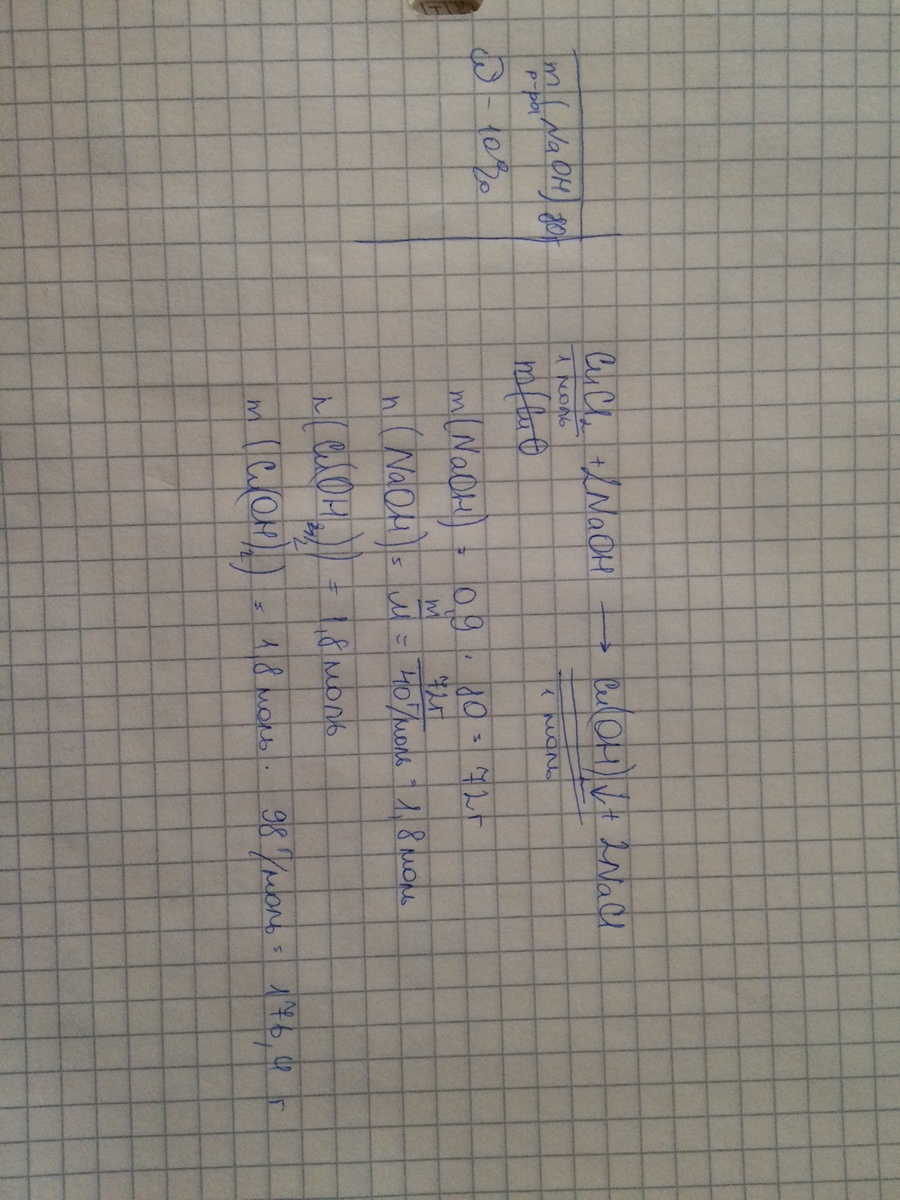 m р-ра (NaOH) 80г
ω - 10%
CuCl₂ + 2NaOH → Cu(OH)₂↓ + 2NaCl
1 моль 1 моль
m(NaOH) = 0,9 · 80 = 72г
n(NaOH) = m/M = 72г/40г/моль = 1,8 моль
n(Cu(OH)₂) = 1,8 моль
m(Cu(OH)₂) = 1,8 моль · 98 г/моль = 176,4 г